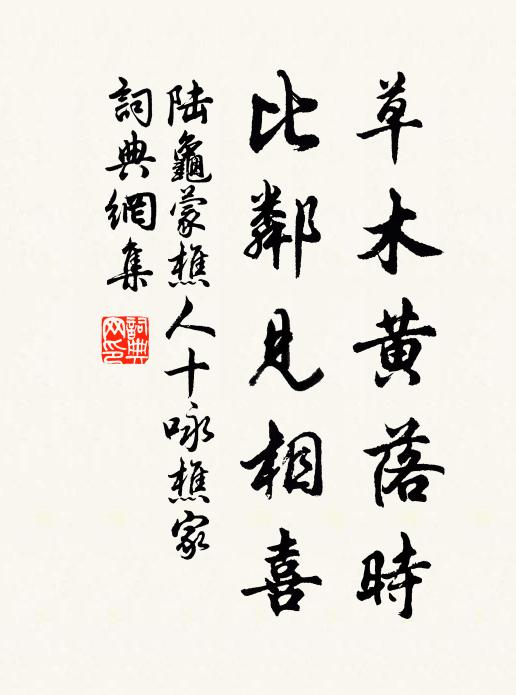 草木黄落時
比鄰見相喜
陸龜蒙樵人十咏樵家
詞典網集
詞典網印